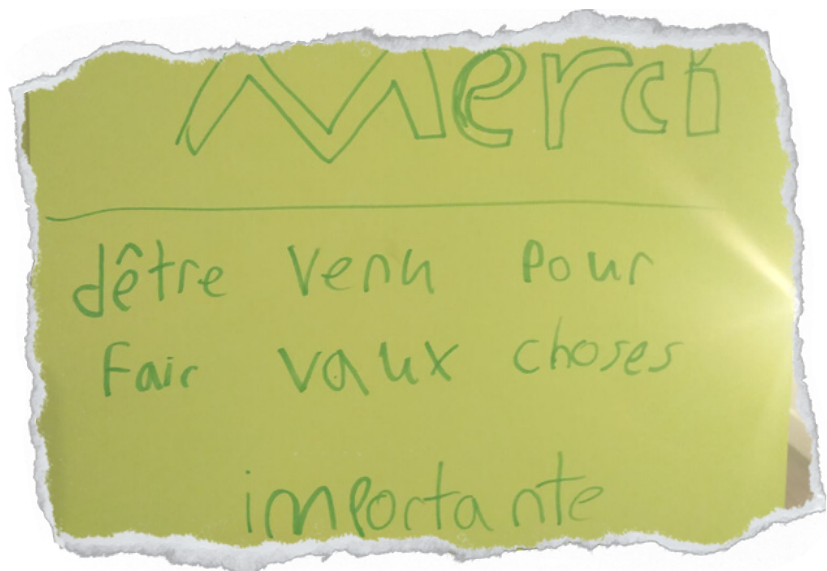 Merci
dêtre venu pour
Fair vaux choses
importante